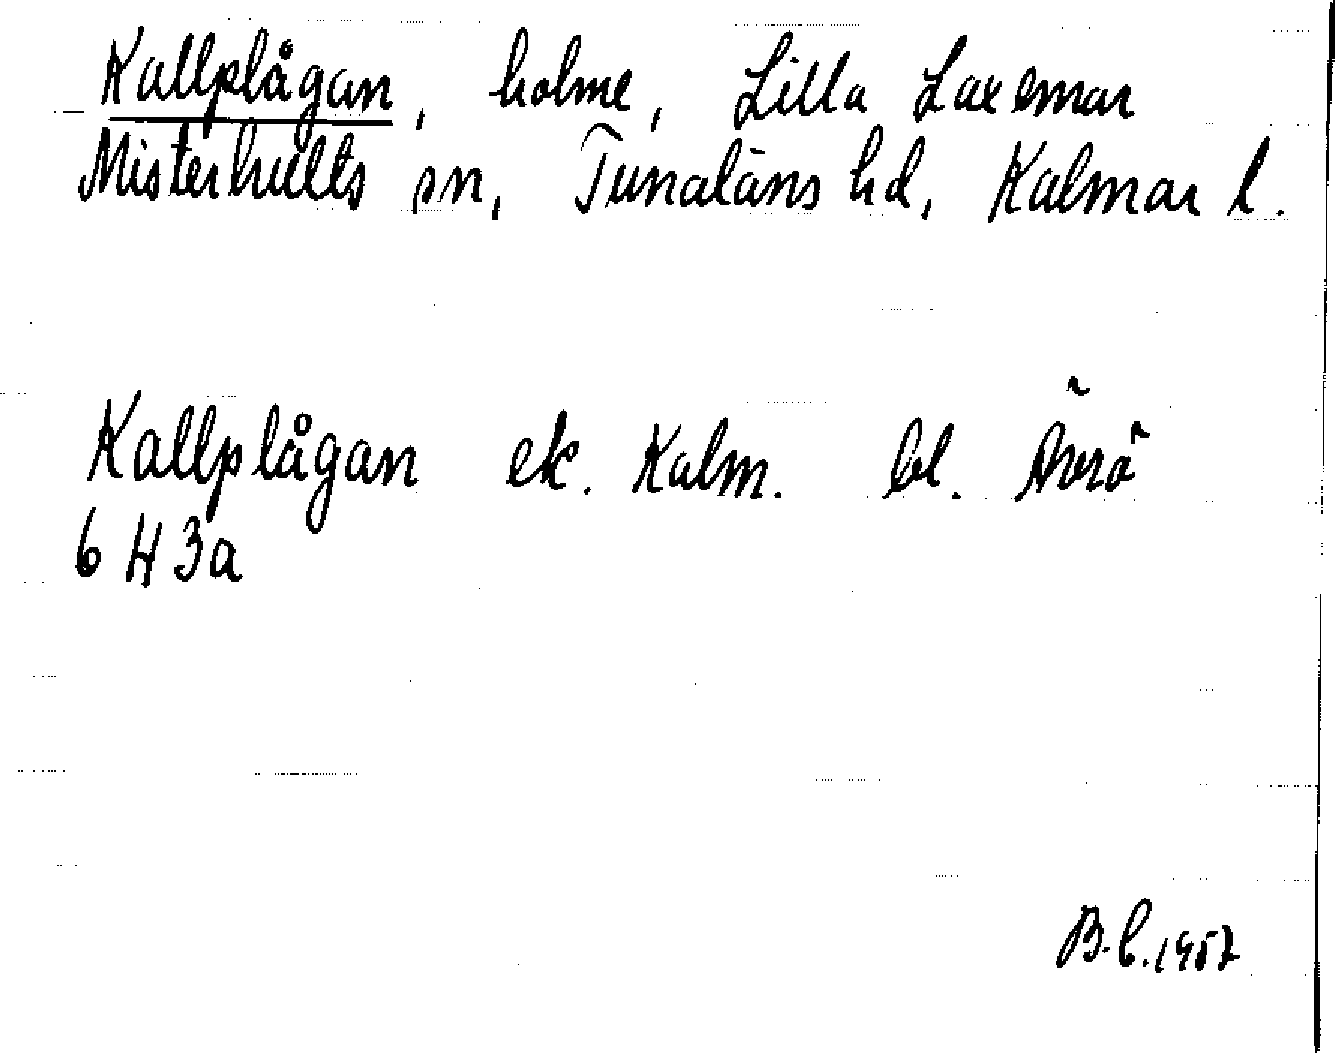 Kallplågan, holme, Lilla Laxemar
Misterhults sn, Tunaläns hd, Kalmar l.
Kallplågan ek. Kalm. bl. Ävrö
6 H 3a
B.C. 1957